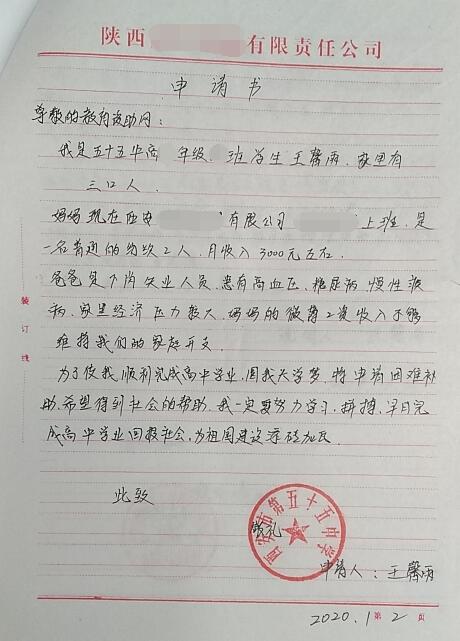 陕西 有限责任公司
申请书
尊敬的教育资助网：
我是五十五中高 年级 班学生王馨雨，家里有
三口人。
妈妈现在西安 有限公司 上班，是
一名普通的纺织工人，月收入3000元左右。
爸爸是下岗失业人员，患有高血压，糖尿病，慢性
病，家里经济压力较大，妈妈的微薄工资收入不够
维持我们的家庭开支。
为了使我顺利完成高中学业，圆我大学梦，特申请困难补
助，希望得到社会的帮助。我一定要努力学习，拼搏，早日完
成高中学业回报社会，为祖国建设添砖加瓦。
此致
敬礼
西安市第五十五中学
申请人：王馨雨
2020.1 第 2 页
装订线